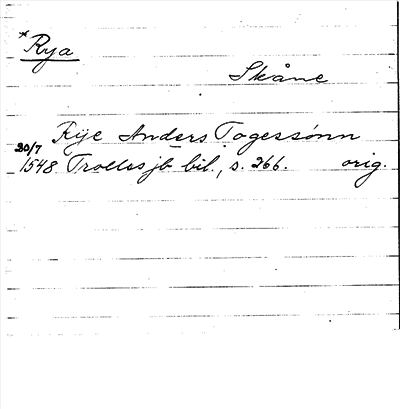 *Rya
Skåne
Rije Anders Togessønn
20/7
1548 Trolles jb bil., s. 266. orig.